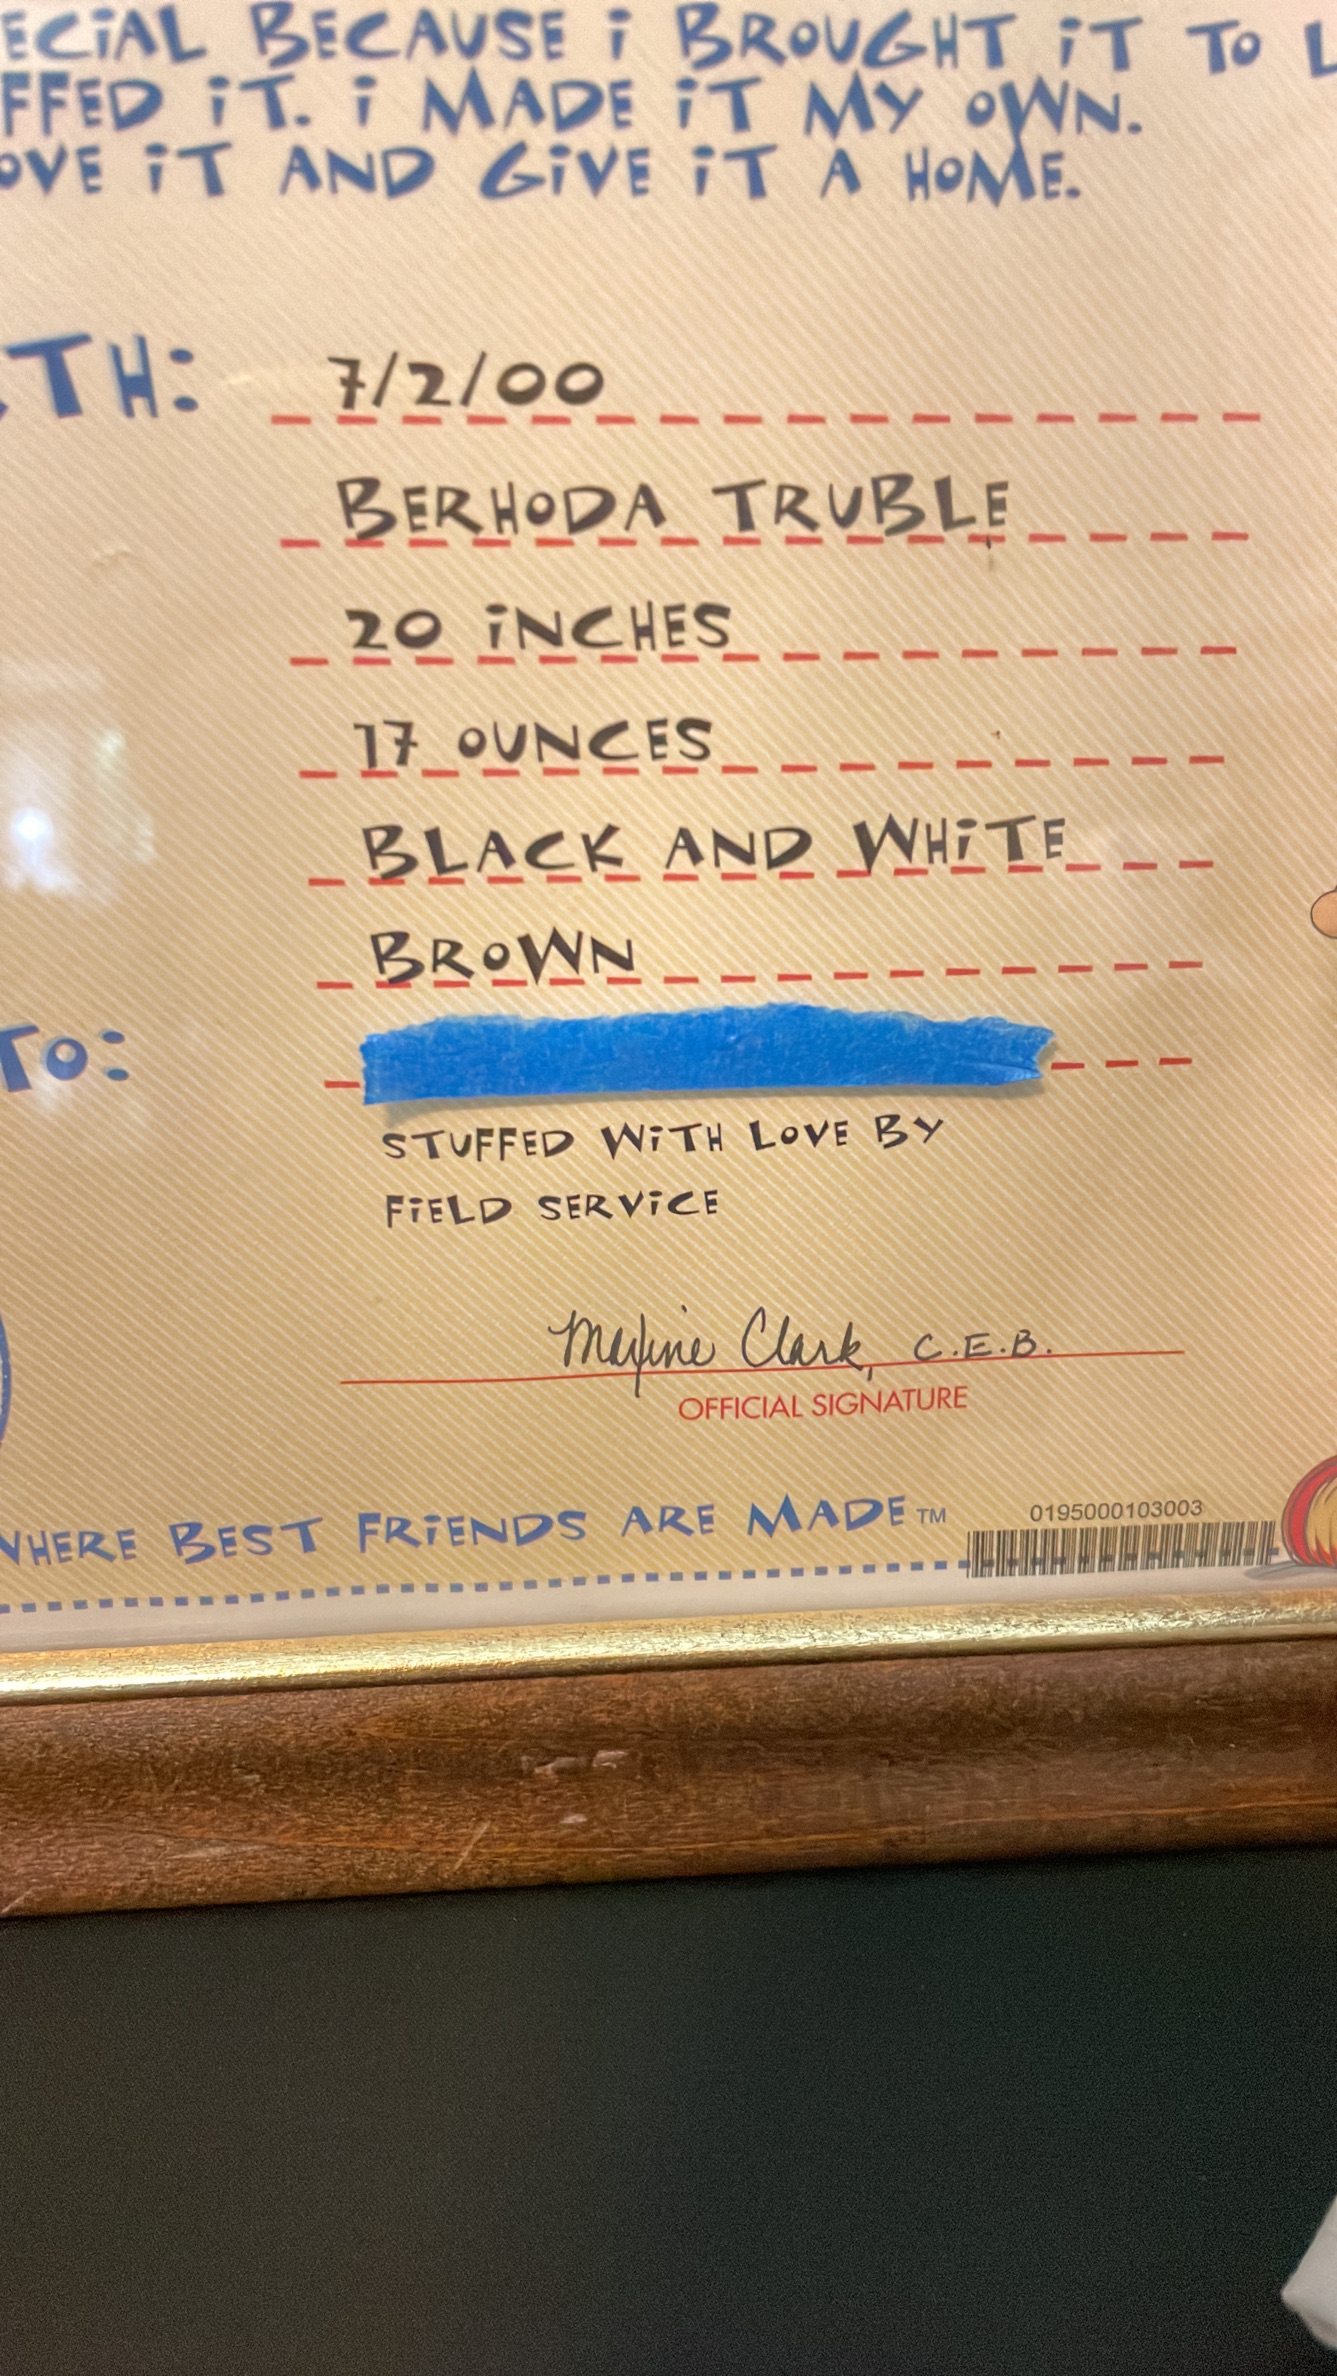 ECIAL BECAUSE I BROUGHT IT TO L
FFED IT. I MADE IT MY OWN.
OVE IT AND GIVE IT A HOME.
TH: 7/2/00
BERHODA TRUBLE
20 INCHES
17 OUNCES
BLACK AND WHITE
BROWN
TO:
STUFFED WITH LOVE BY
FIELD SERVICE
Maxine Clark, C.E.B.
OFFICIAL SIGNATURE
WHERE BEST FRIENDS ARE MADE™
0195000103003